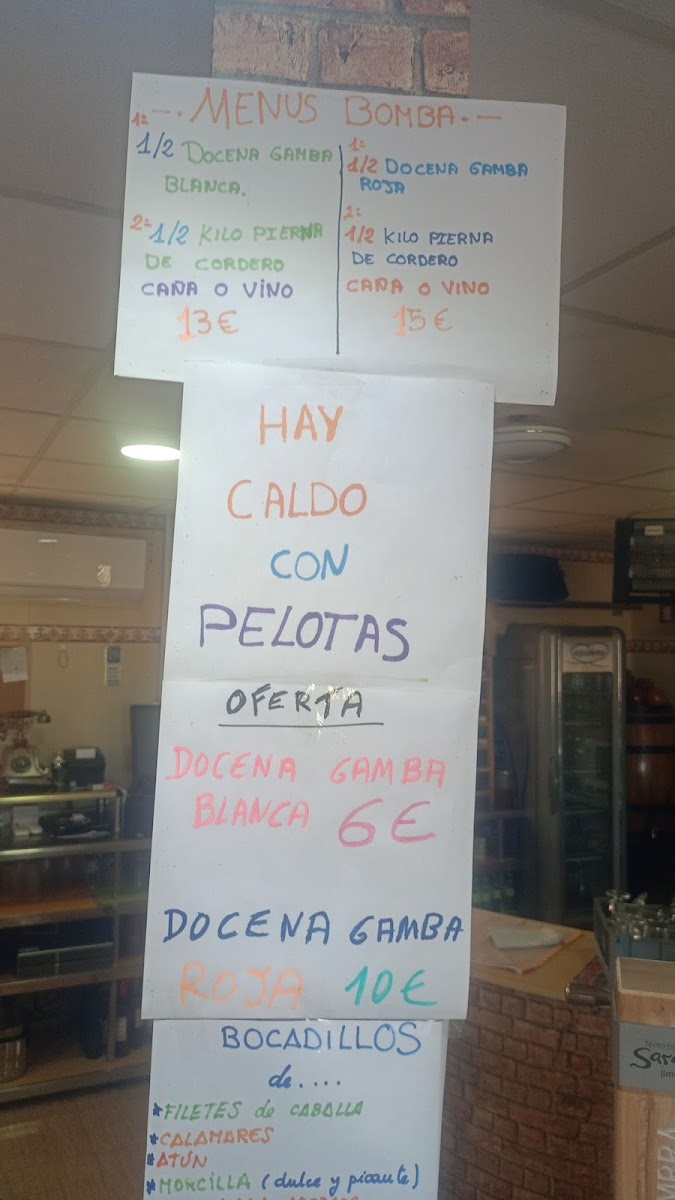 —. MENUS BOMBA. —
1=
1/2 DOCENA GAMBA
BLANCA.
2= 1/2 KILO PIERNA
DE CORDERO
CAÑA O VINO
13€
1=
1/2 DOCENA GAMBA
ROJA
2=
1/2 KILO PIERNA
DE CORDERO
CAÑA O VINO
15€
HAY
CALDO
CON
PELOTAS
OFERTA
DOCENA GAMBA
BLANCA 6€
DOCENA GAMBA
ROJA 10€
BOCADILLOS
de....
*FILETES de CABALLA
*CALAMARES
*ATÚN
*MORCILLA (dulce y picante)